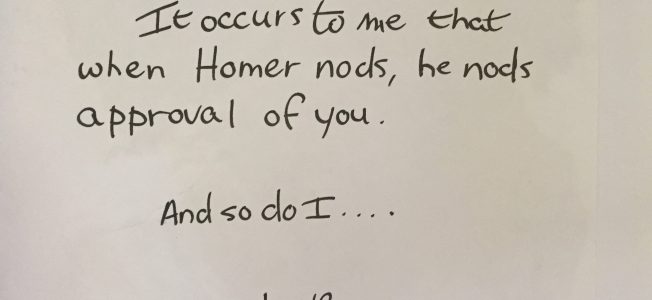 It occurs to me that
when Homer nods, he nods
approval of you.
And so do I....